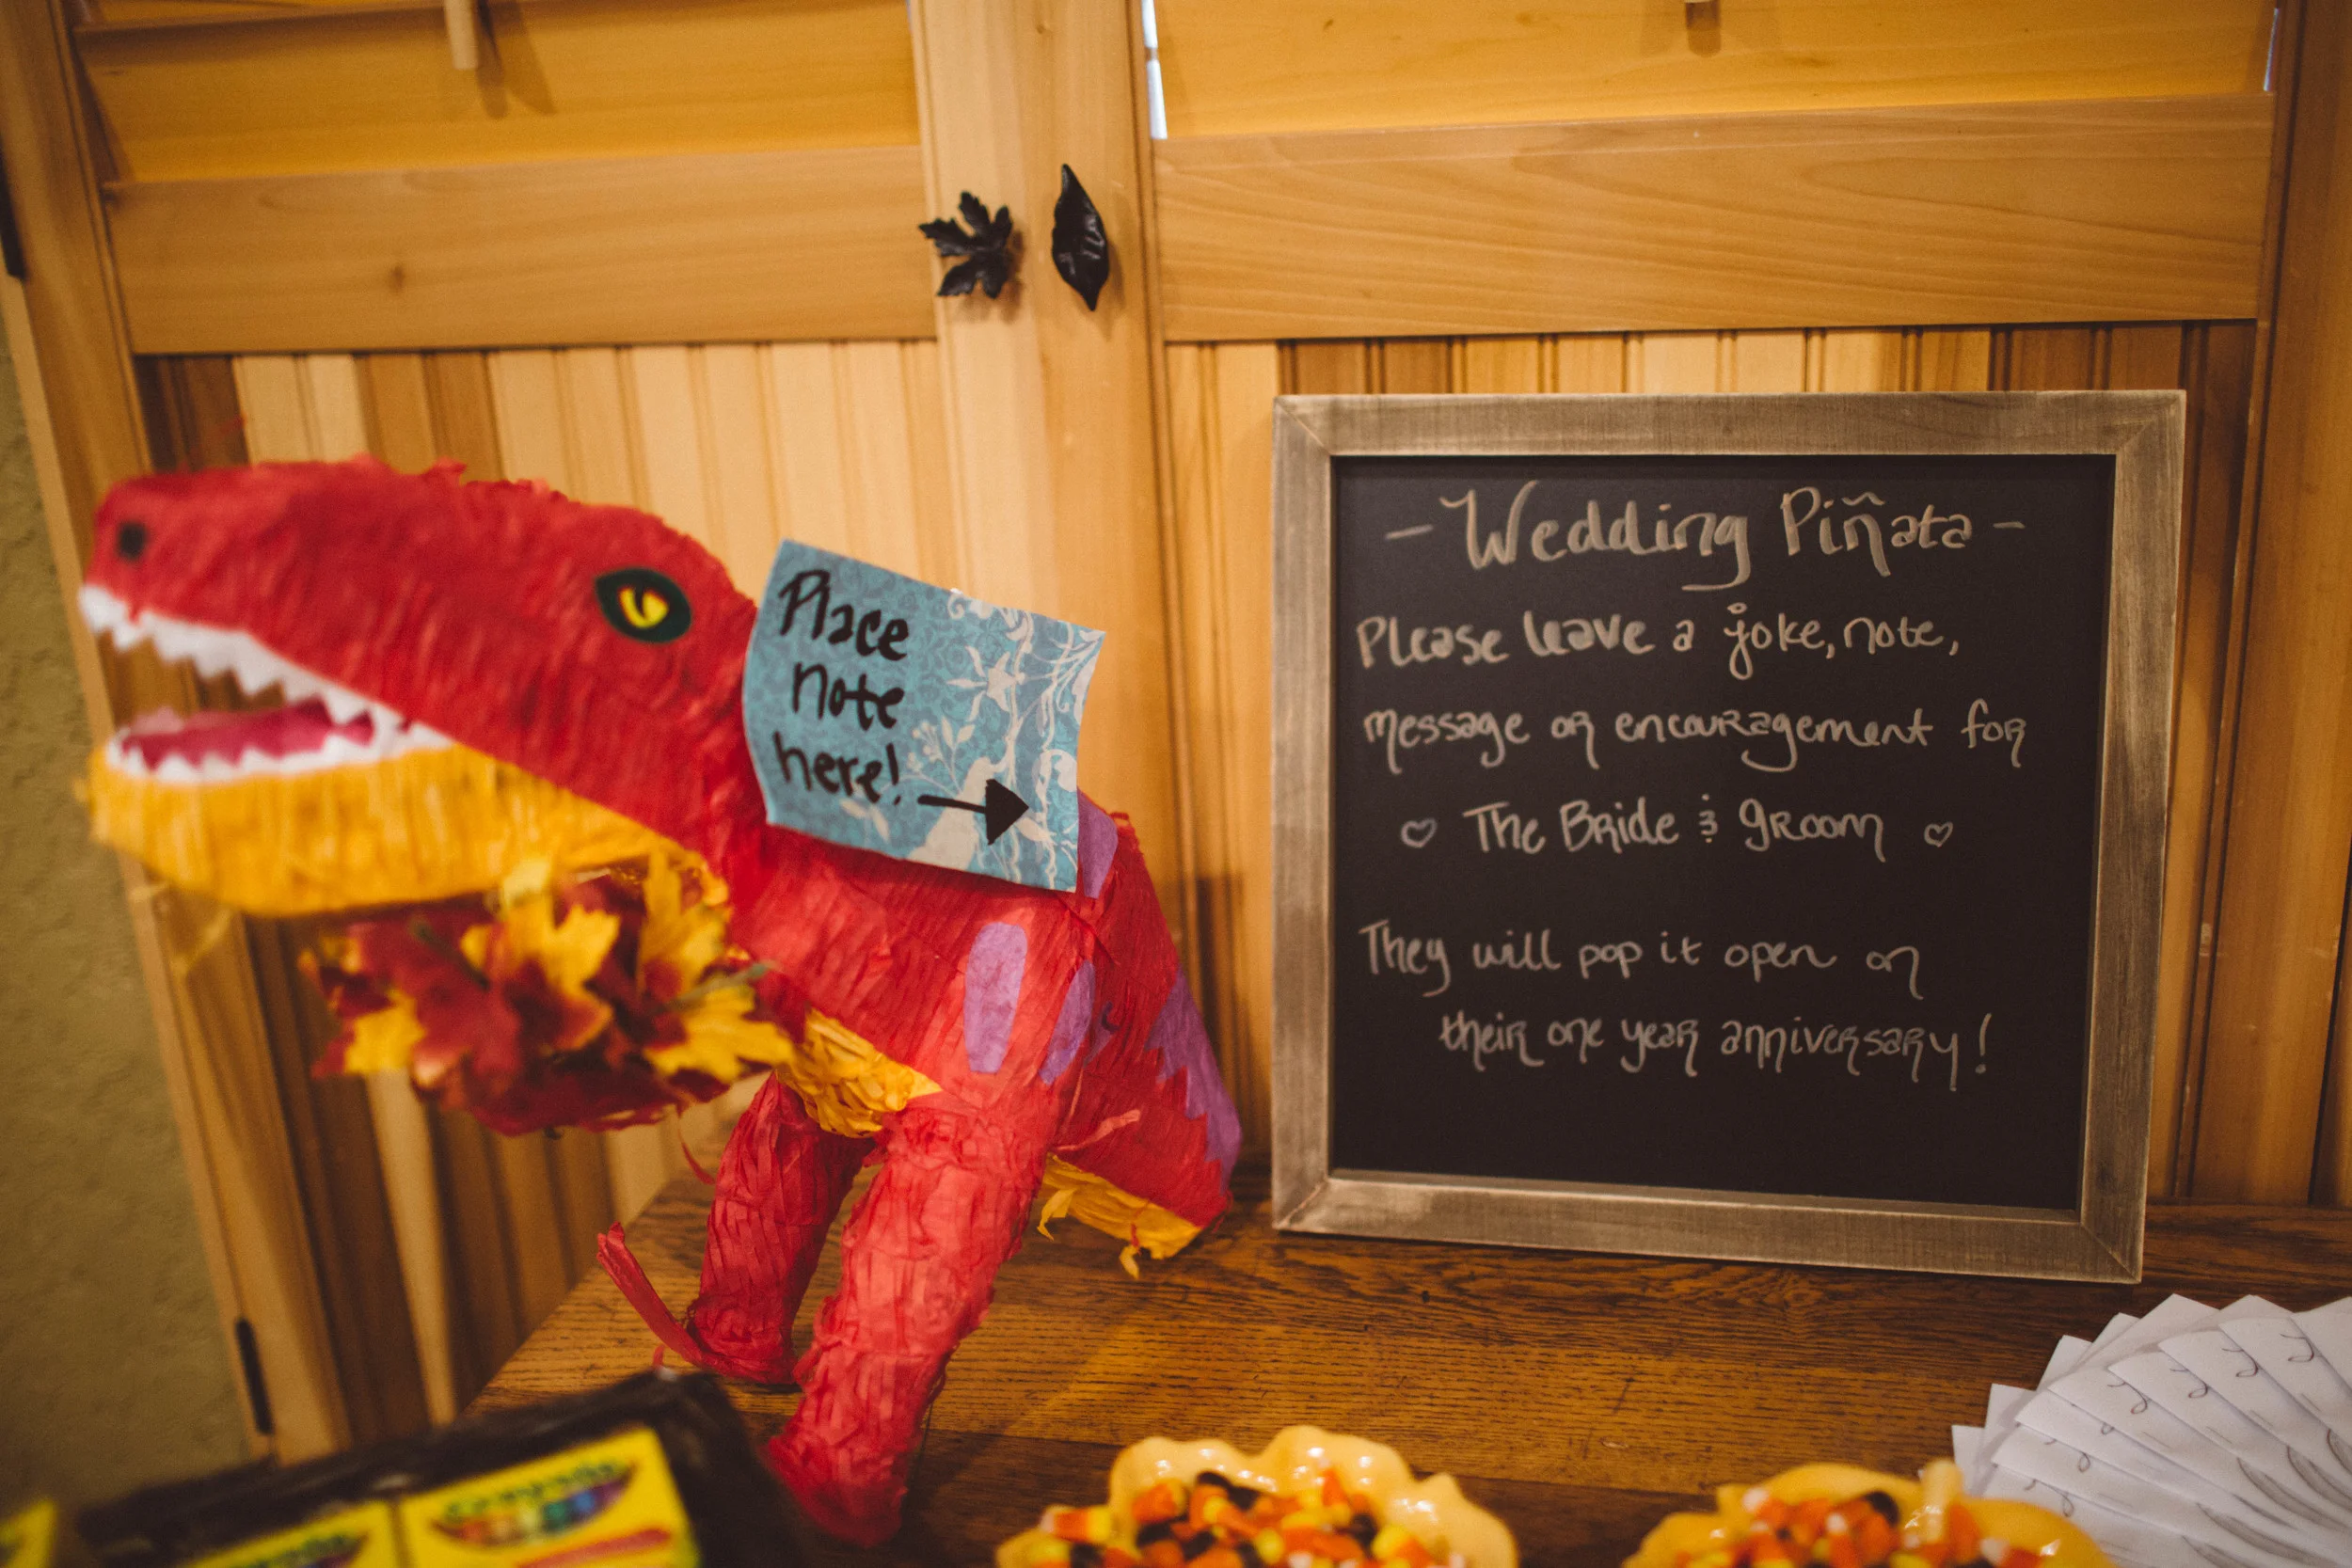 Place
note
here!
- Wedding Piñata -
Please leave a joke, note,
message or encouragement for
♡ The Bride & groom ♡
They will pop it open on
their one year anniversary!
Crayola